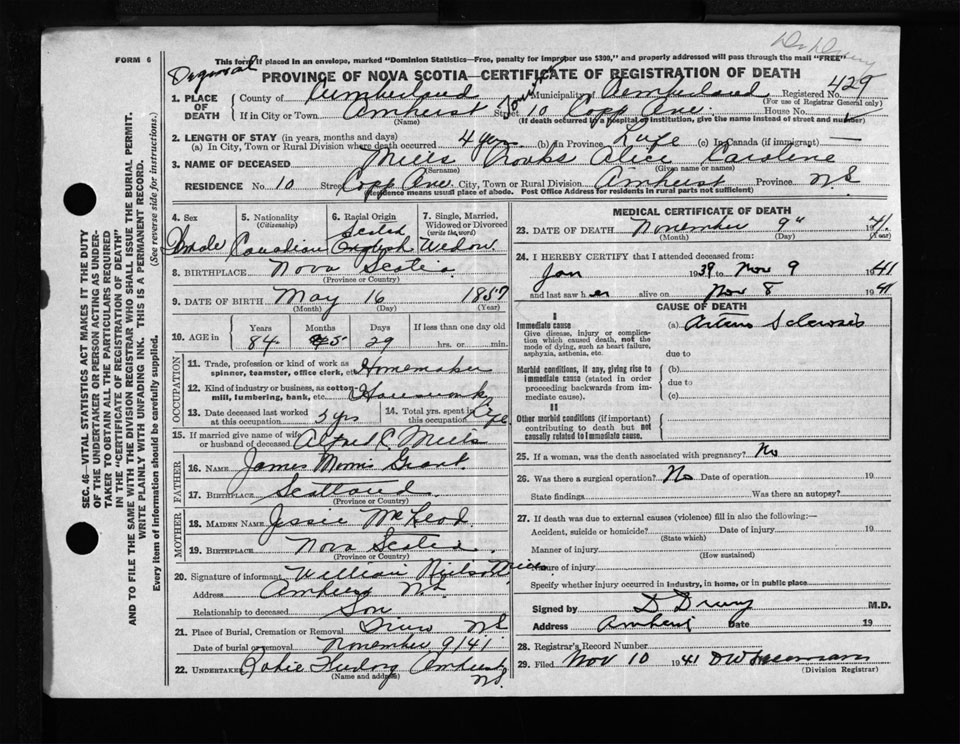 FORM 6
This form if placed in an envelope, marked "Dominion Statistics—Free, penalty for improper use $300", and properly addressed will pass through the mail "FREE"
PROVINCE OF NOVA SCOTIA—CERTIFICATE OF REGISTRATION OF DEATH
1. PLACE OF DEATH County of Cumberland Municipality of Cumberland Registered No. 429
(For use of Registrar General only)
If in City or Town Amherst (Name) Street 10 Copp Ave. House No.
(If death occurred in a hospital or institution, give the name instead of street and number)
2. LENGTH OF STAY (in years, months and days)
(a) In City, Town or Rural Division where death occurred 4 yrs (b) in Province Life (c) In Canada (if immigrant) —
3. NAME OF DECEASED Mills Alice Caroline
(Surname) (Given name or names)
RESIDENCE No. 10 Street Copp Ave. City, Town or Rural Division Amherst Province N.S
Residence means usual place of abode. Post Office Address for residents in rural parts not sufficient)
4. Sex 5. Nationality (Citizenship) 6. Racial Origin 7. Single, Married, Widowed or Divorced (write the word)
Female Canadian Scotch English Widow
8. BIRTHPLACE Nova Scotia
(Province or Country)
9. DATE OF BIRTH May 16 1857
(Month) (Day) (Year)
10. AGE in Years Months Days If less than one day old
84 5 29 hrs. or min.
OCCUPATION
11. Trade, profession or kind of work as spinner, teamster, office clerk, etc. Homemaker
12. Kind of industry or business, as cotton-mill, lumbering, bank, etc. Housework
13. Date deceased last worked at this occupation 3 yrs 14. Total yrs. spent in this occupation Life
15. If married give name of wife or husband of deceased Alfred C. Mills
FATHER
16. NAME James Morris Grant
17. BIRTHPLACE Scotland
(Province or Country)
MOTHER
18. MAIDEN NAME Jessie McLeod
19. BIRTHPLACE Nova Scotia
(Province or Country)
20. Signature of informant William Mills
Address Amherst N.S
Relationship to deceased Son
21. Place of Burial, Cremation or Removal Truro N.S
Date of burial or removal November 9/41
22. UNDERTAKER Amherst N.S
(Name and address)
MEDICAL CERTIFICATE OF DEATH
23. DATE OF DEATH November 9" 1941
(Month) (Day) (Year)
24. I HEREBY CERTIFY that I attended deceased from:
Jan 1939 to Nov 9 1941
and last saw her alive on Nov 8 1941
CAUSE OF DEATH
I
Immediate cause
Give disease, injury or complication which caused death, not the mode of dying, such as heart failure, asphyxia, asthenia, etc.
(a) Arterio Sclerosis
due to
Morbid conditions, if any, giving rise to immediate cause (stated in order proceeding backwards from immediate cause).
(b)
due to
(c)
II
Other morbid conditions (if important) contributing to death but not causally related to immediate cause.
25. If a woman, was the death associated with pregnancy? No
26. Was there a surgical operation? No Date of operation 19
State findings Was there an autopsy?
27. If death was due to external causes (violence) fill in also the following:—
Accident, suicide or homicide? Date of injury 19
(State which)
Manner of injury
(How sustained)
Nature of injury
Specify whether injury occurred in industry, in home, or in public place
Signed by D Drury M.D.
Address Amherst Date 19
28. Registrar's Record Number
29. Filed Nov 10 1941
(Division Registrar)
SEC. 46—VITAL STATISTICS ACT MAKES IT THE DUTY
OF THE UNDERTAKER OR PERSON ACTING AS UNDERTAKER TO OBTAIN ALL THE PARTICULARS REQUIRED
IN THE "CERTIFICATE OF REGISTRATION OF DEATH"
AND TO FILE THE SAME WITH THE DIVISION REGISTRAR WHO SHALL ISSUE THE BURIAL PERMIT.
WRITE PLAINLY WITH UNFADING INK. THIS IS A PERMANENT RECORD.
Every item of information should be carefully supplied. (See reverse side for instructions.)